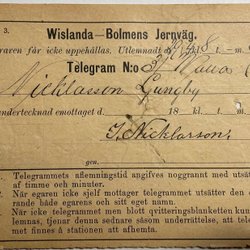 3.
Wislanda—Bolmens Jernväg.
garen får icke uppehållas. Utlemnadt 8 t. m.
Telegram N:o
Nicklarson Ljungby
ndertecknad emottaget d. 18 kl. t. m.
J. Nicklarson
gen.
1. Telegrammets aflemningstid angifves noggrannt med utsät
af timme och minuter.
2. När egaren icke sjelf mottager telegrammet utsätter den e
rande både egarens och sitt eget namn.
3. När icke telegrammet men blott qvitteringsblanketten kun
lemnas, tjenar denna sednare såsom underrättelse, att tele
met finnes å stationen att afhemta.